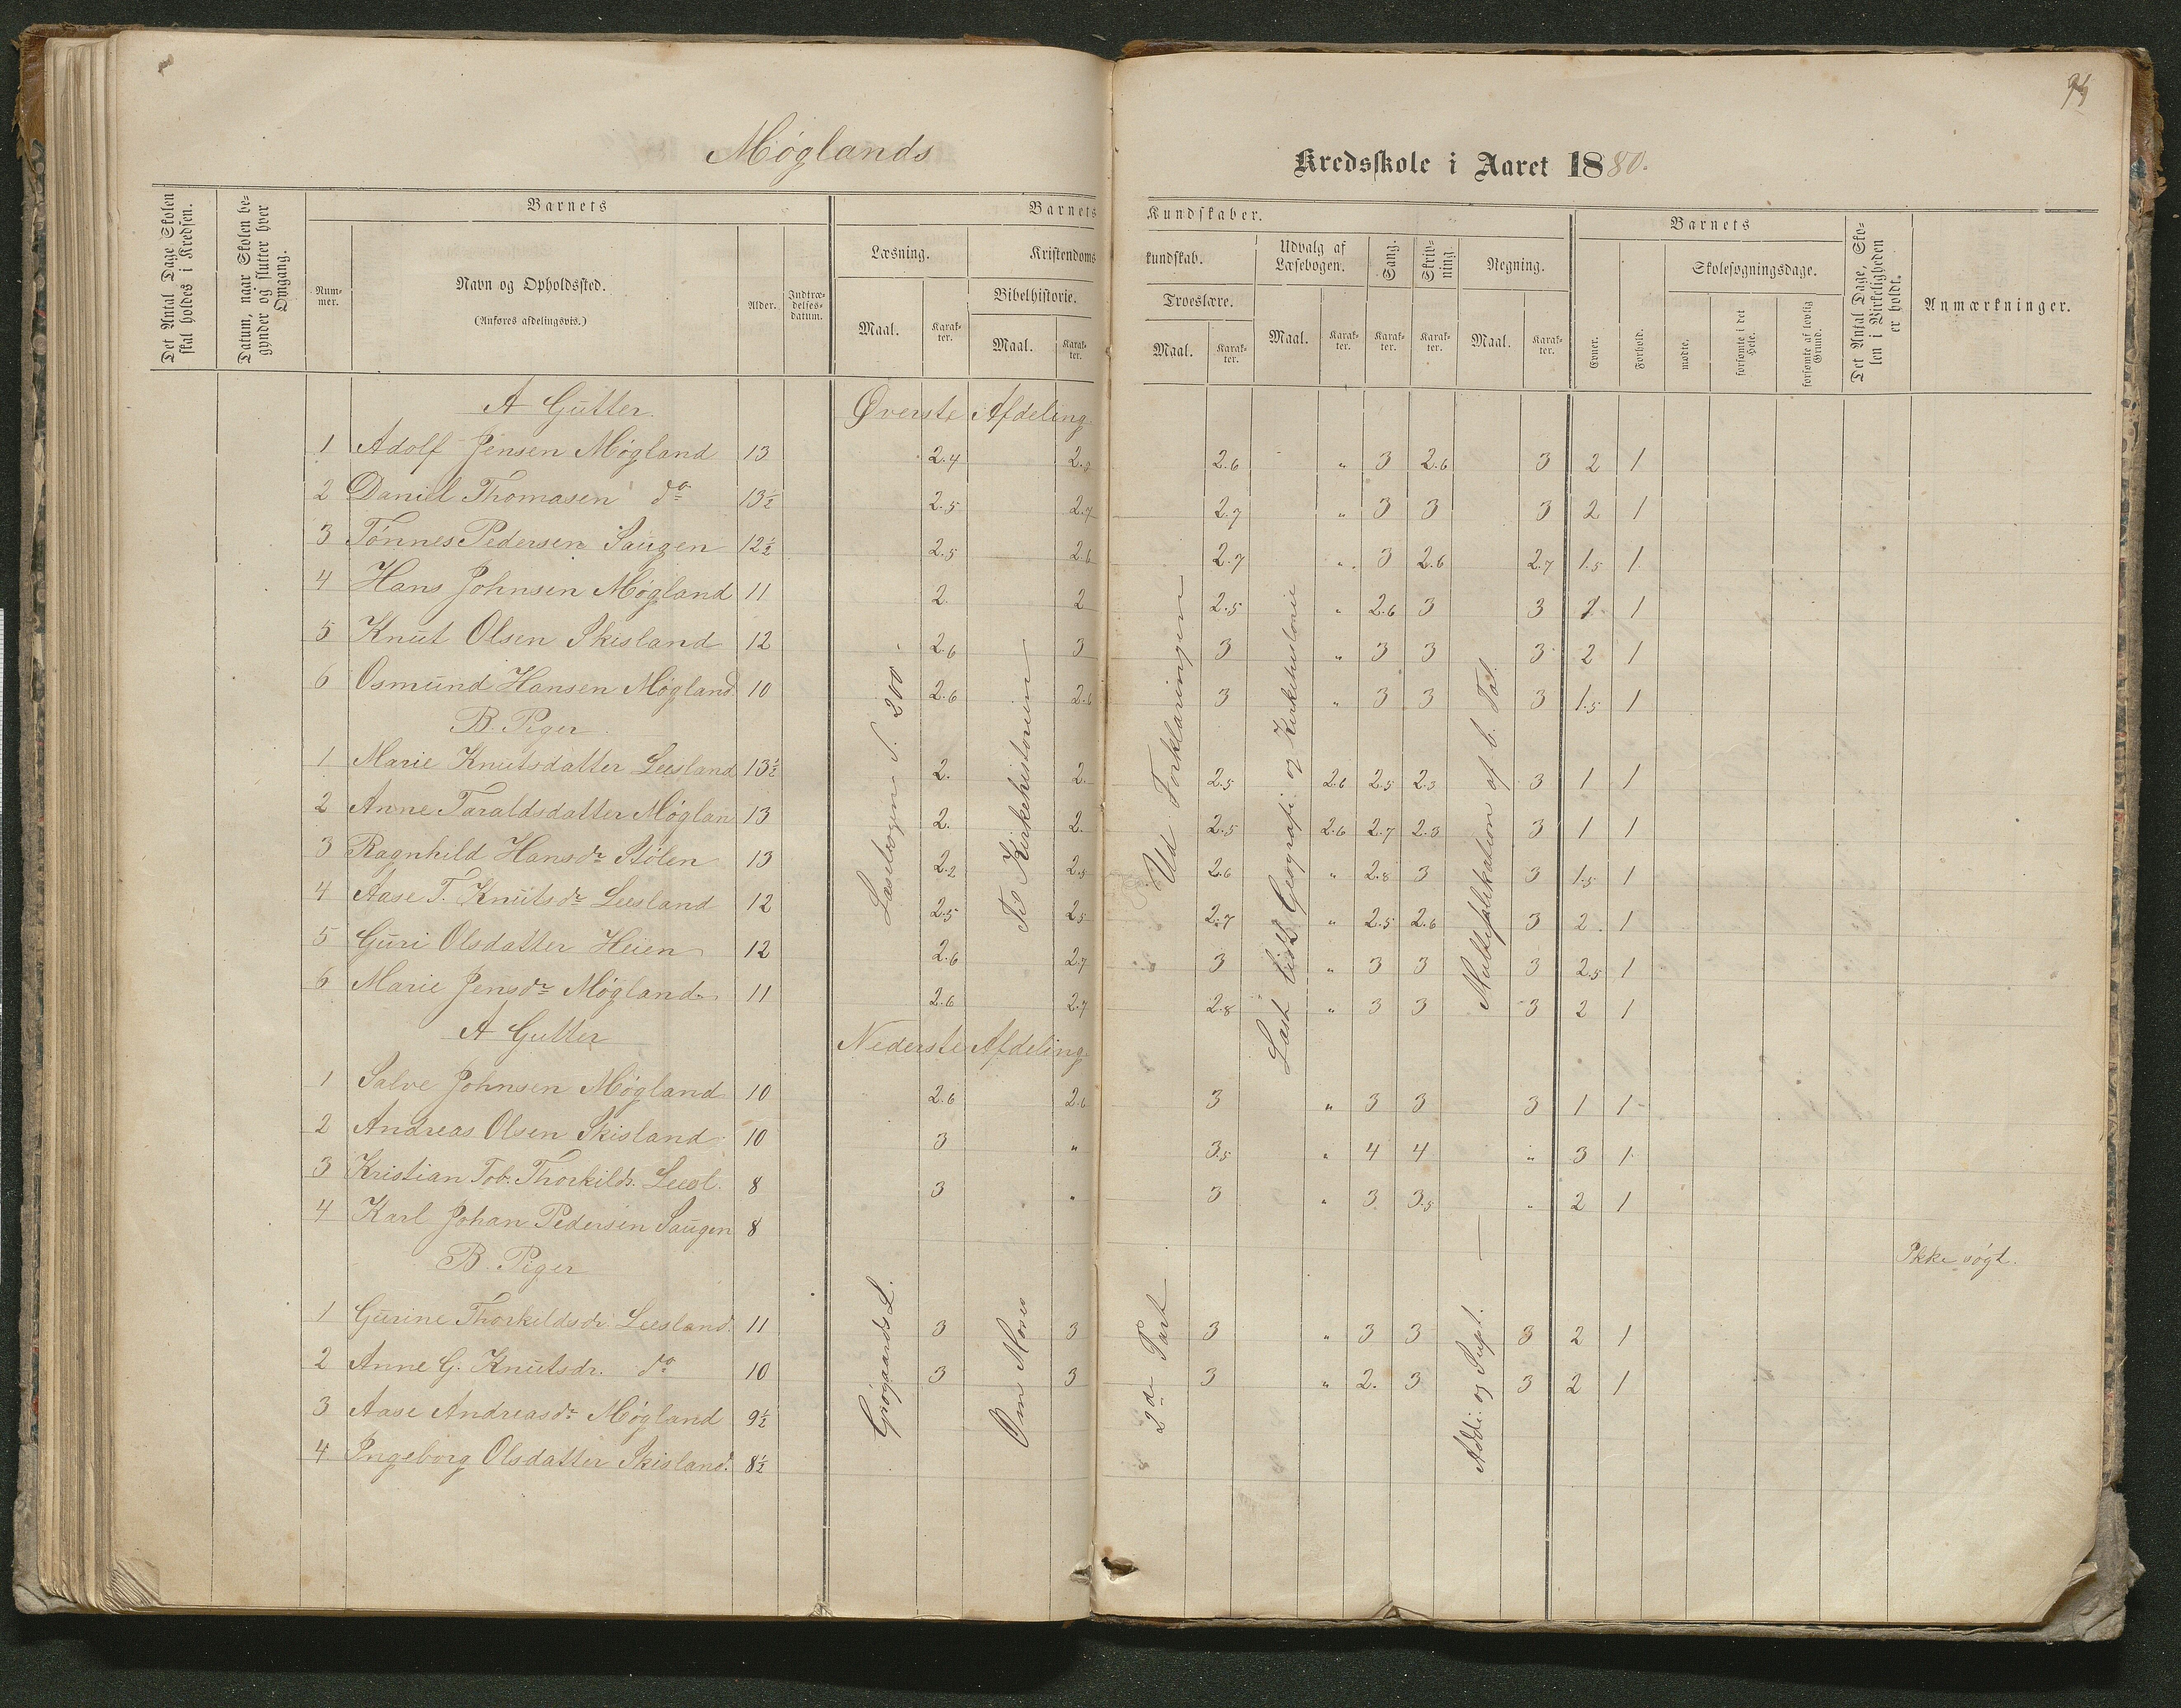 Møglands
Kredsskole i Aaret 1880.
Det Antal Dage Skolen skal holdes i Kredsen.
Datum, naar Skolen begynder og slutter hver Omgang.
Barnets
Nummer.
Navn og Opholdssted.
(Anføres afdelingsvis.)
Alder.
Indtrædelsesdatum.
Barnets Kundskaber.
Læsning.
Maal.
Karakter.
Kristendomskundskab.
Bibelhistorie.
Maal.
Karakter.
Troeslære.
Maal.
Karakter.
Udvalg af Læsebogen.
Maal.
Karakter.
Sang.
Karakter.
Skrivning.
Karakter.
Regning.
Maal.
Karakter.
Barnets
Evner.
Forhold.
Skolesøgningsdage.
mødte.
forsømte i det Hele.
forsømte af lovlig Grund.
Det Antal Dage, Skolen i Virkeligheden er holdt.
Anmærkninger.
A Gutter. Øverste Afdeling
1 Adolf Jensen Møgland 13 2.4 2.6 " 3 2.6 3 2 1
2 Daniel Thomasen do 13½ 2.5 2.7 2.7 " 3 3 3 2 1
3 Tønnes Pedersen Saugen 12½ 2.5 2.6 2.7 " 3 2.6 2.7 1.5 1
4 Hans Johnsen Møgland 11 2. 2 2.5 " 2.6 3 3 1
5 Knut Olsen Skisland 12 2.6 3 3 " 3 3 3 2 1
6 Osmund Hansen Møgland 10 2.6 2.6 3 " 3 3 3 1.5 1
B. Piger.
1 Marie Knutsdatter Leesland 13½ 2. 2. 2.5 2.6 2.5 2.3 3 1 1
2 Anne Taraldsdatter Møglan 13 2. 2. 2.5 2.6 2.7 2.3 3 1 1
3 Ragnhild Hansdr Stølen 13 2.2 2.5 2.6 " 2.8 3 3 1.5 1
4 Aase T. Knutsdr Leesland 12 2.5 2.5 2.7 " 2.5 2.6 3 2. 1
5 Guri Olsdatter Heien 12 2.6 2.7 3 " 3 3 3 2.5 1
6 Marie Jensdr Møgland 11 2.6 2.7 2.8 " 3 3 3 2 1
Læsebogen S. 200.
Til Kirkehistorien
Ud Forklaringen
Læst lidt Geografi og Kirkehistorie
Multiplikation af b. Tal.
A Gutter Nederste Afdeling
1 Salve Johnsen Møgland 10 2.6 2.6 3 " 3 3 3 1 1
2 Andreas Olsen Skisland 10 3 " 3.5 " 4 4 " 3 1
3 Kristian Tob. Thorkilds. Leesl. 8 3 " 3 " 3 3.5 " 2 1
4 Karl Johan Pedersen Saugen 8 Ikke søgt.
B. Piger
1 Gurine Thorkildsdr. Leesland. 11 3 3 3 " 3 3 3 2 1
2 Anne G. Knutsdr. do 10 3 3 3 " 2. 3 3 2 1
3 Aase Andreasdr Møgland 9½
4 Ingeborg Olsdatter Skisland. 8½
Grøgaards L.
Om Moses
2den Part
Addi. og Supt.